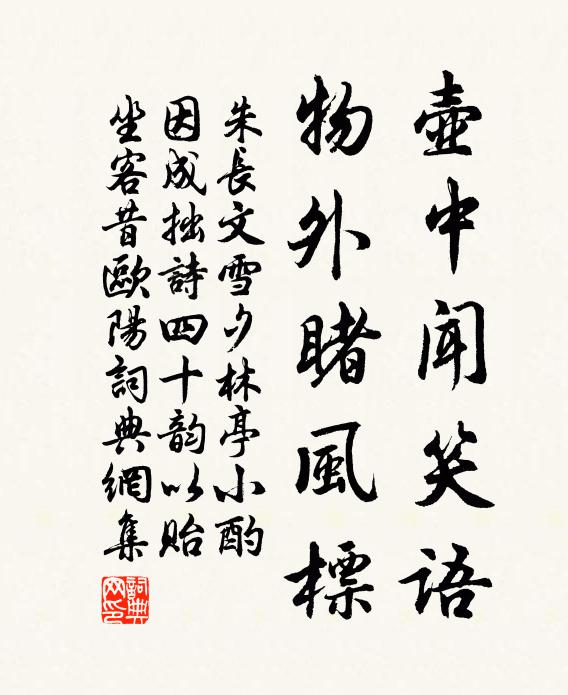 壺中聞笑語
物外睹風標
朱長文雪夕林亭小酌
因成拙詩四十韵以貽
坐客昔歐陽詞典網集
詞典網印